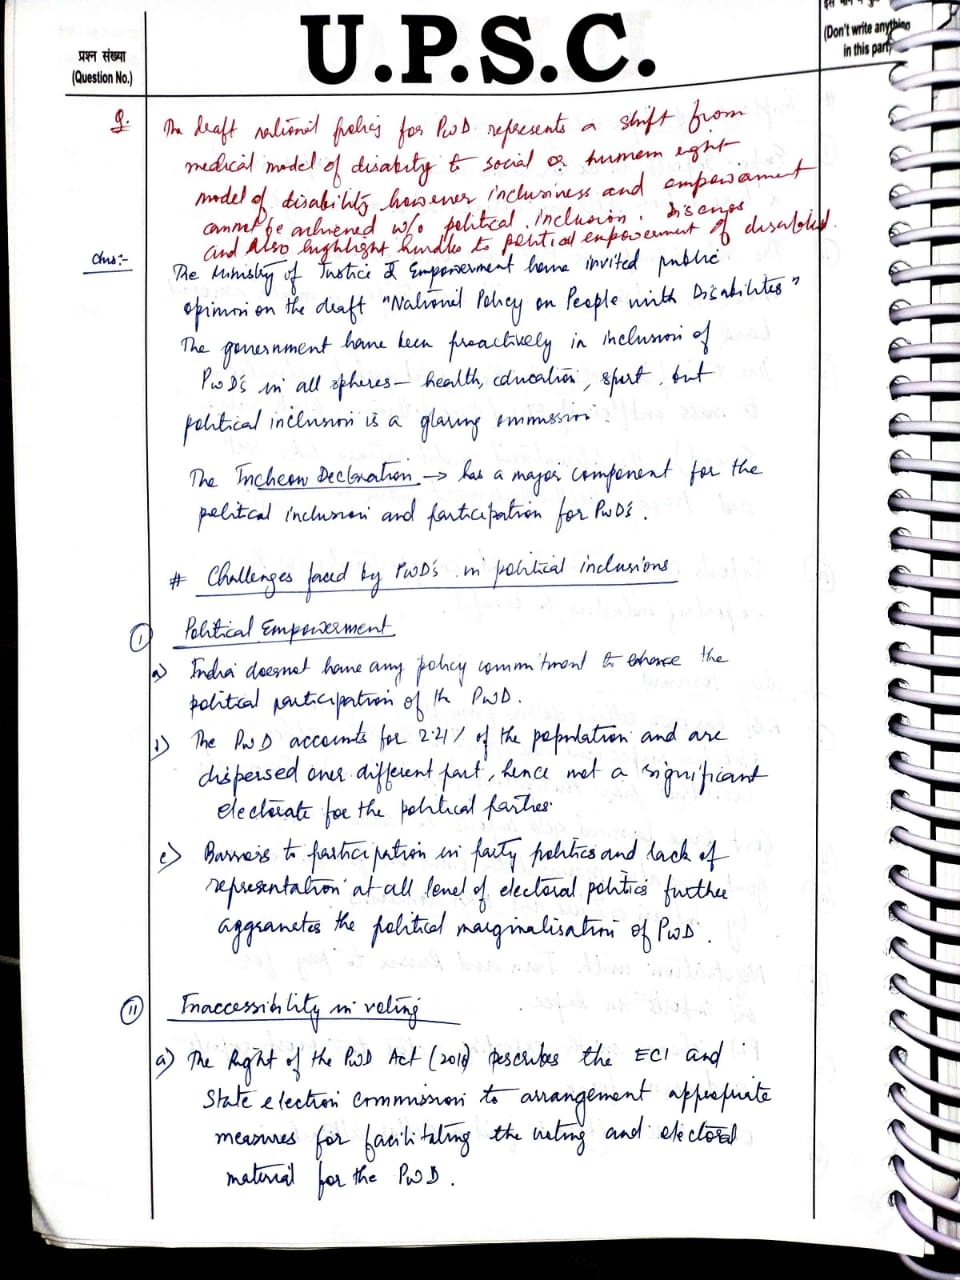 U.P.S.C.
प्रश्न संख्या
(Question No.)
(Don't write anything
in this part)
Q.
The draft national policy for PwD represents a shift from
medical model of disability to social or human right
model of disability however inclusiness and empowerment
cannot be achieved w/o political inclusion. Discuss
and Also highlight hurdles to political empowerment of disabled.
Ans:-
The Ministry of Justice & Empowerment have invited public
opinion on the draft "National Policy on People with Disabilites"
The government have been proactively in inclusion of
PwD's in all spheres - health, education, sport, but
political inclusion is a glaring ommission.
The Incheon Declaration → has a major component for the
political inclusion and participation for PwD's.
# Challenges faced by PwD's in political inclusions
I Political Empowerment
a) India doesnot have any policy commitment to enhance the
political participation of the PWD.
b) The PwD accounts for 2.21% of the population and are
dispersed over different part, hence not a significant
electorate for the political parties.
c) Barriers to participation in party politics and lack of
representation at all level of electoral politics further
the political marginalisation of PwD.
II Inaccessibility in voting
a) The Right of the PwD Act (2016) Describes the ECI and
State election commission to arrangement appropriate
measures for facilitating the voting and electoral
material for the PWD.